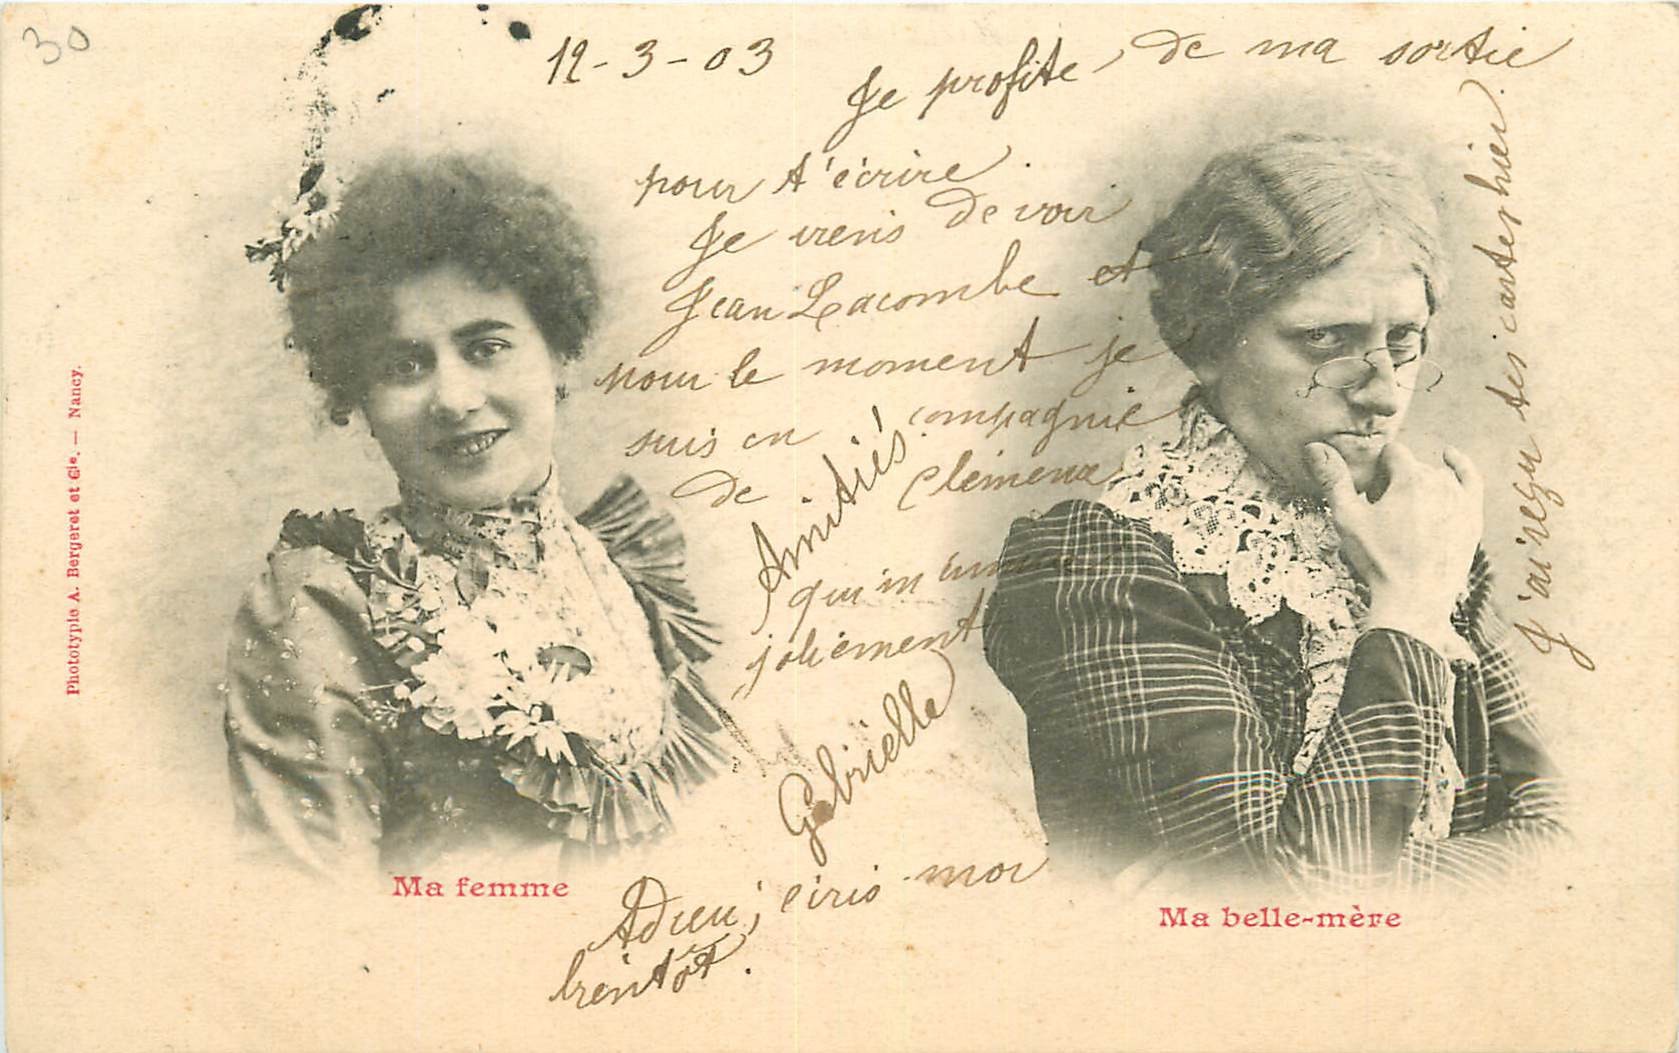 30
12-3-03
Je profite de ma sortie
pour t'écrire.
Je viens de voir
Jean Lacombe et
pour le moment je
suis en compagnie
de Clémence
qui m'ennuie
joliement
Amitiés
Gabrielle
Adieu, écris moi
bientôt.
J'ai reçu tes cartes hier.
Ma femme
Ma belle-mère
Phototypie A. Bergeret et Cie. — Nancy.